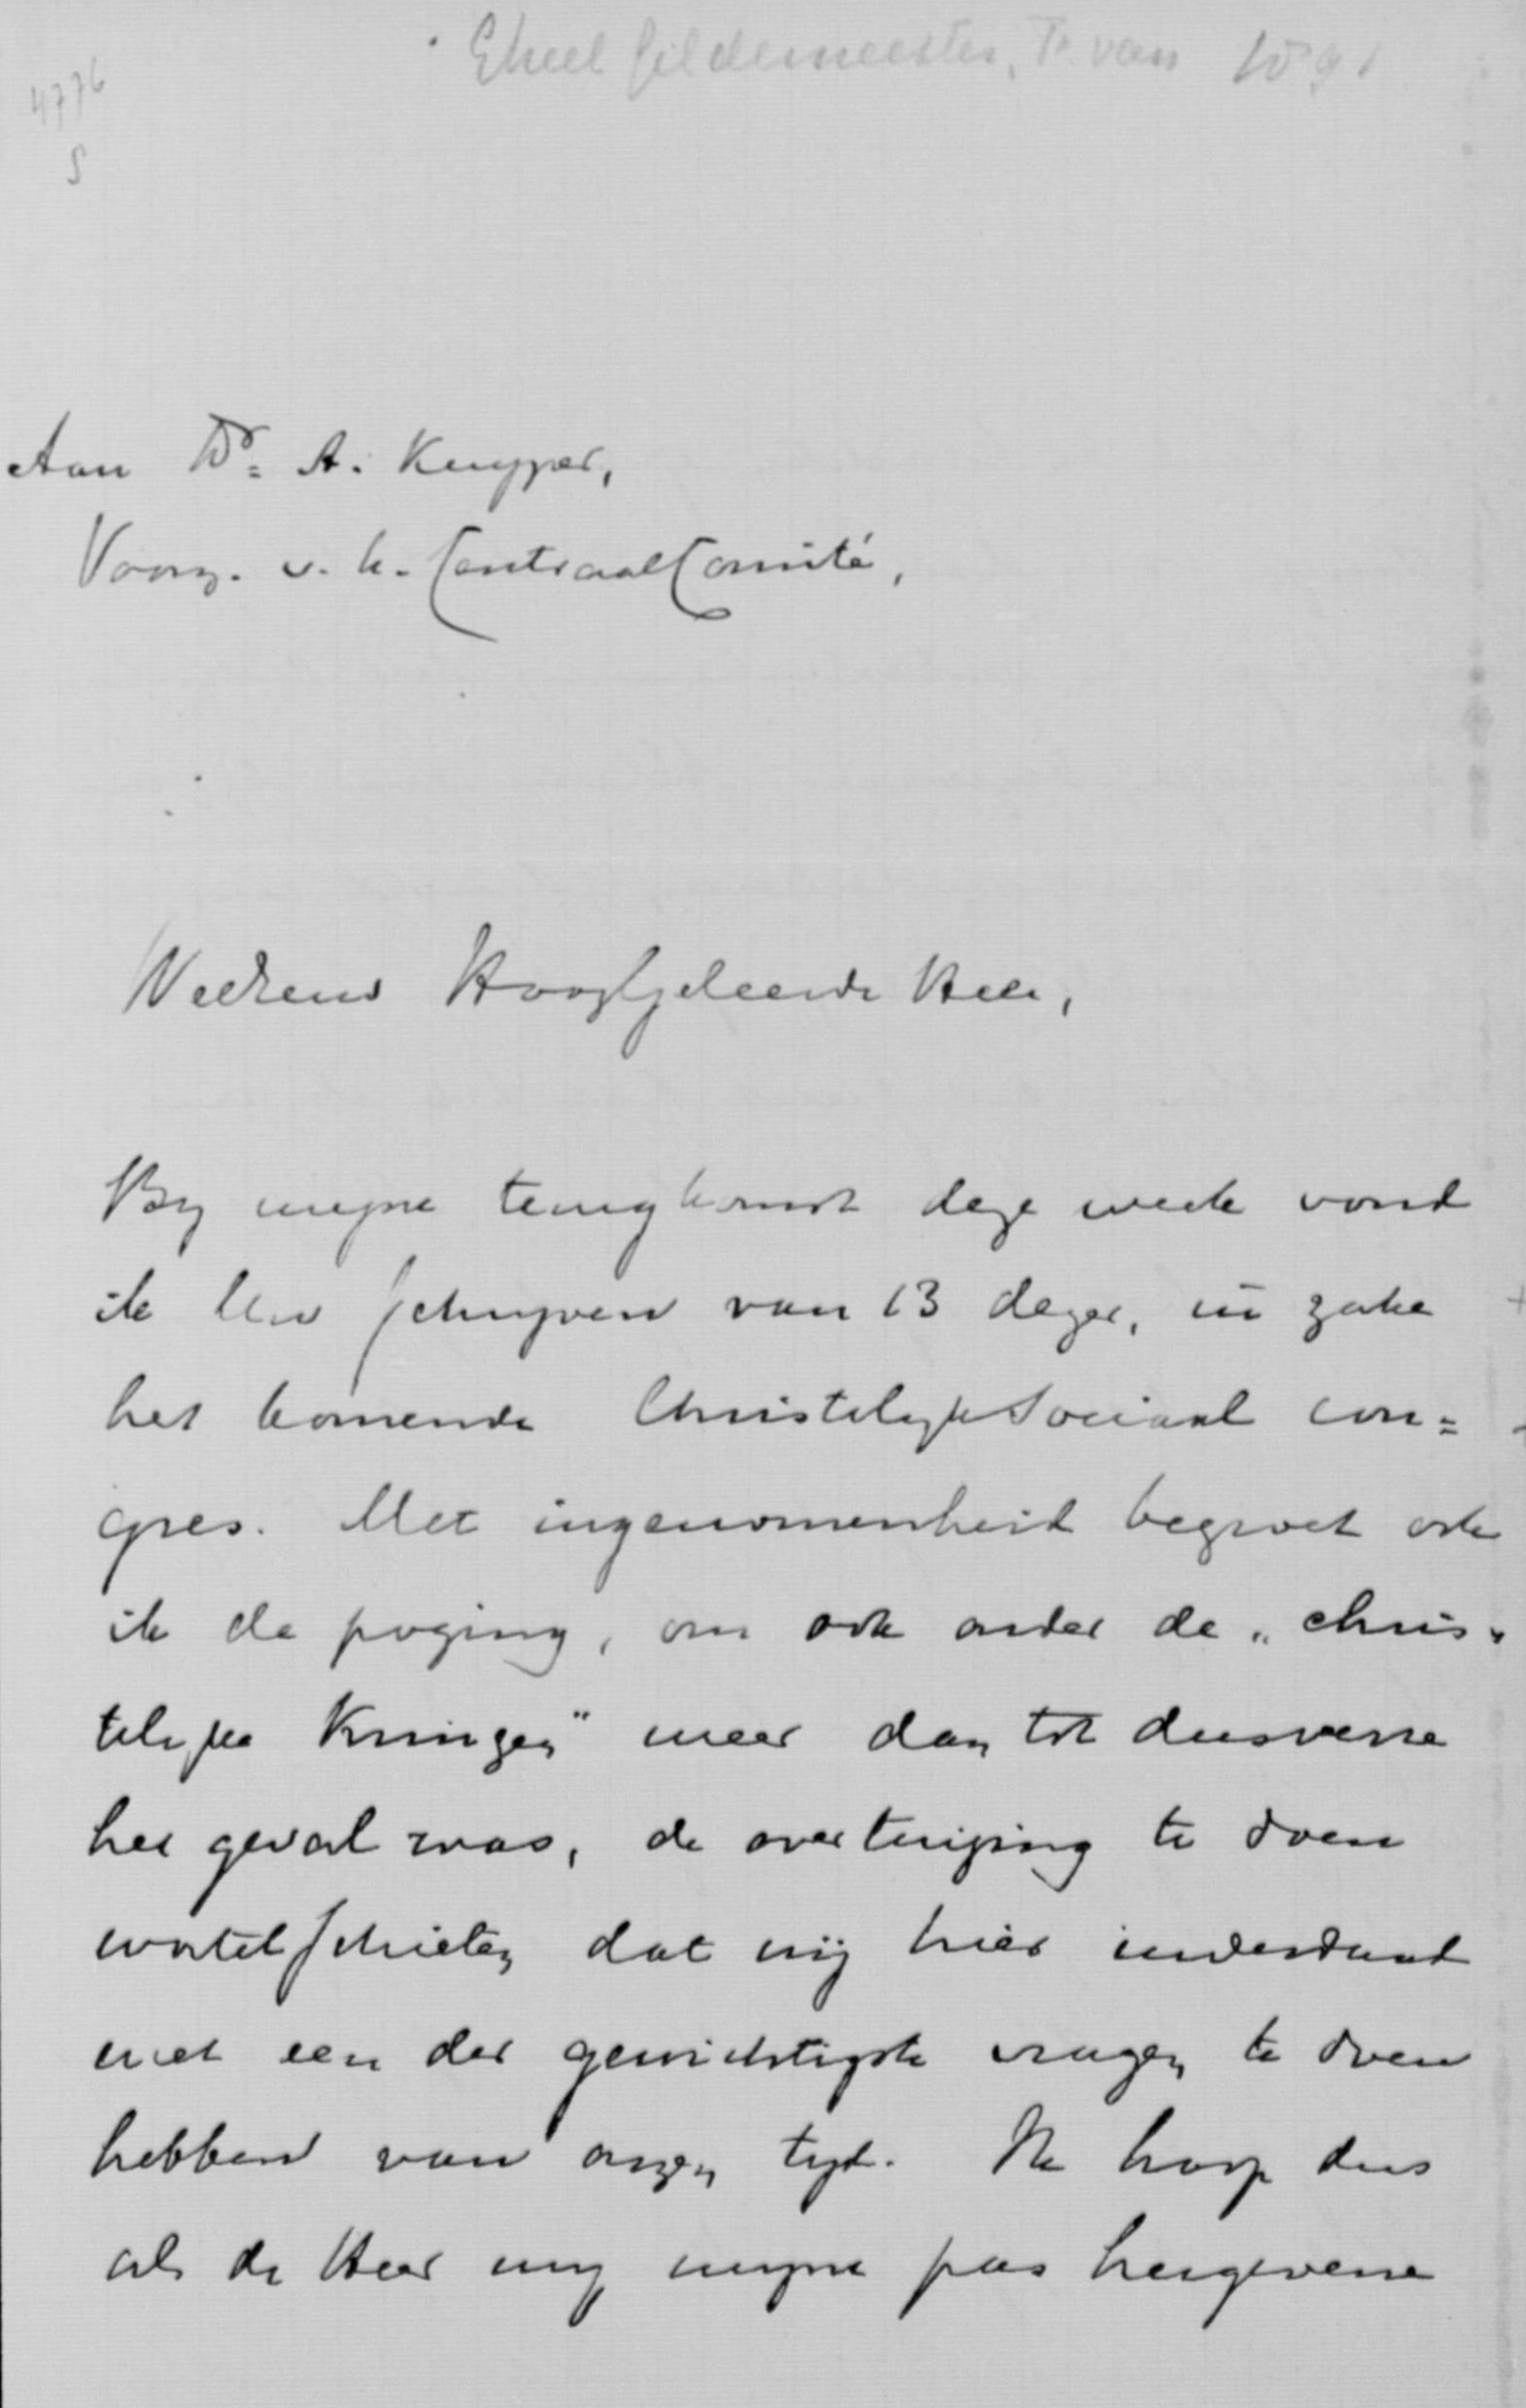 Eheel Gildemeester, F. van 1891
4776
S
Aan Dr. A. Kuyper,
Voorz. v. h. Centraal Comité,
Weleerw Hooggeleerde Heer,
By myne terugkomst deze week vond
ik Uw schryven van 13 dezer, in zake
het komende Christelyk Sociaal con=
gres. Met ingenomenheid begroet ook
ik de poging, om ook onder de „chris-
telyke Kringen" meer dan tot dusverre
het geval was, de overtuiging te doen
wortelschieten dat wij hier inderdaad
met een der gewichtigste vragen te doen
hebben van onzen tyd. Ik hoop dus
als de Heer my myne pas hergevene